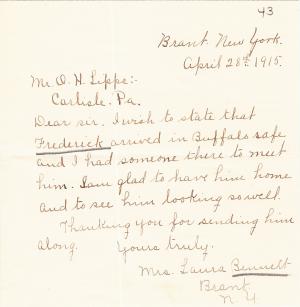 43
Brant. New York.
April 28th, 1915.
Mr. O. H. Lipps:-
Carlisle, Pa.
Dear sir. I wish to state that
Frederick arrived in Buffalo safe
and I had someone there to meet
him. I am glad to have him home
and to see him looking so well.
Thanking you for sending him
along. Yours truly.
Mrs. Laura Bennett
Brant.
N.Y.